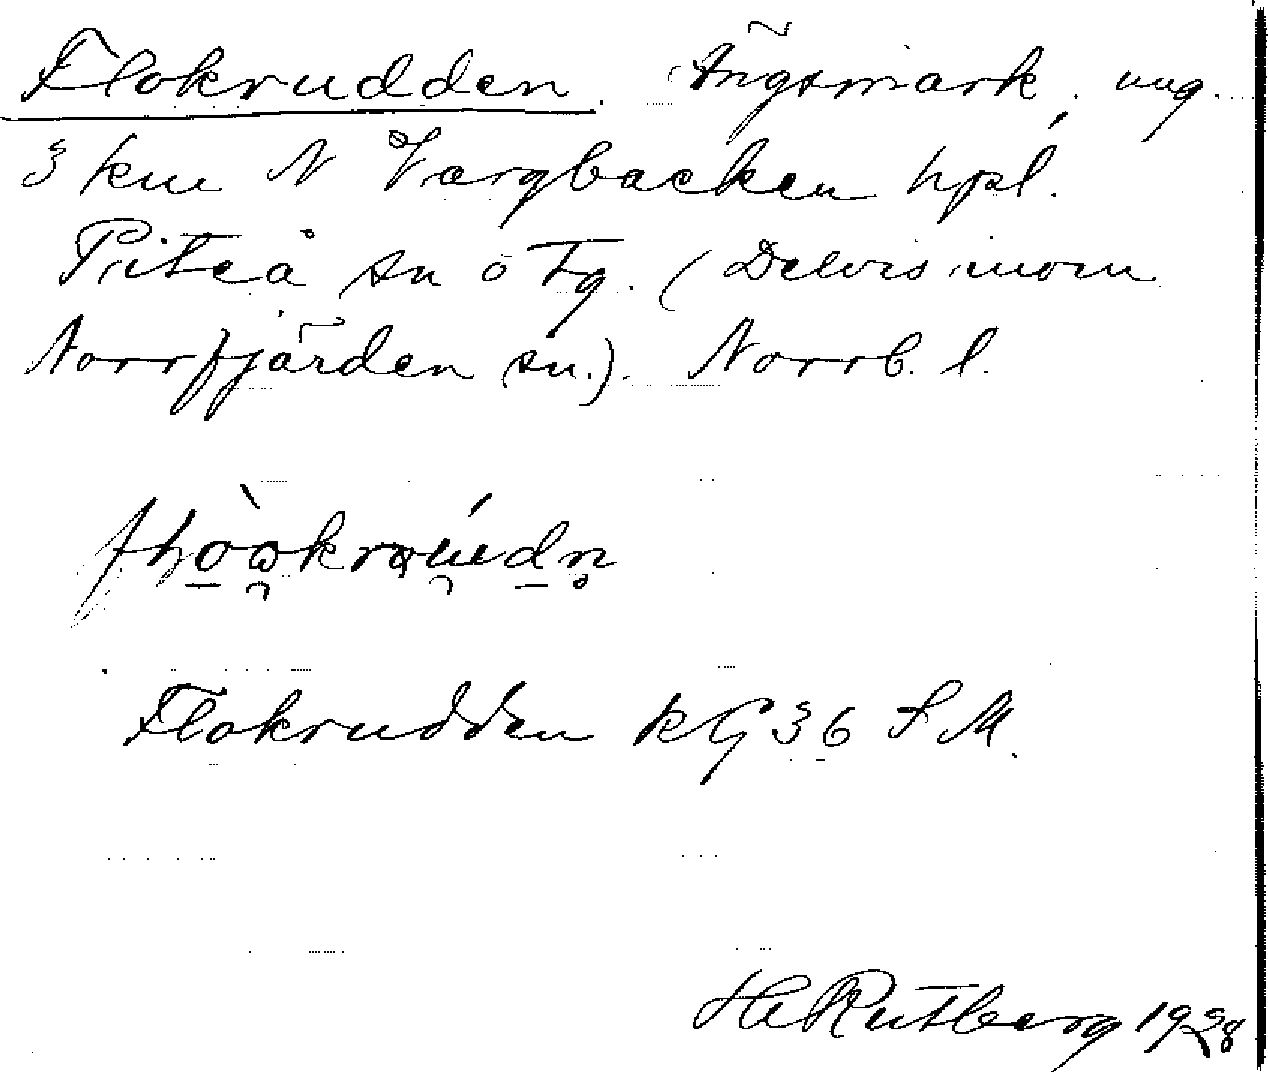 Flokrudden. Ängsmark, ung.
3 km N Vargbacken hpl.
Piteå sn o Tg. (Delvis inom
Norrfjärden sn.). Norrb. l.
Flokrudden kG 36 S M.
H Rutberg 1928